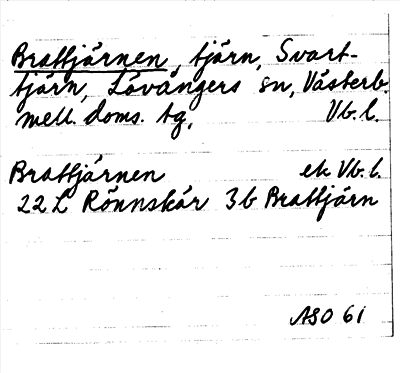 Brattjärnen, tjärn, Svart-
tjärn, Lövångers sn, Västerb.
mell. doms. tg, Vb. l.
Brattjärnen ek Vb. l.
22 L Rönnskär 3 b Brattjärn
ASO 61